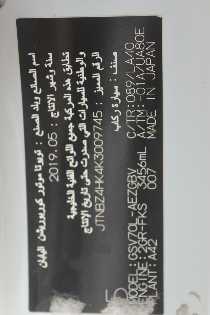 اسم الصانع وبلد الصنع : تويوتا موتور كوربوريشن اليابان
سنة وشهر الإنتاج : 2019.05
تطابق هذه المركبة جميع اللوائح الفنية الخليجية
والوطنية للسيارات التي صدرت حتى تاريخ الإنتاج
الرقم المميز : JTNBZ4HK4K3009745
صنف : سيارة ركاب
MODEL: GSV70L-AEZGBV
ENGINE: 2GR-FKS 3456mL
PLANT: A42
C/TR: 089/LA40
MADE IN JAPAN